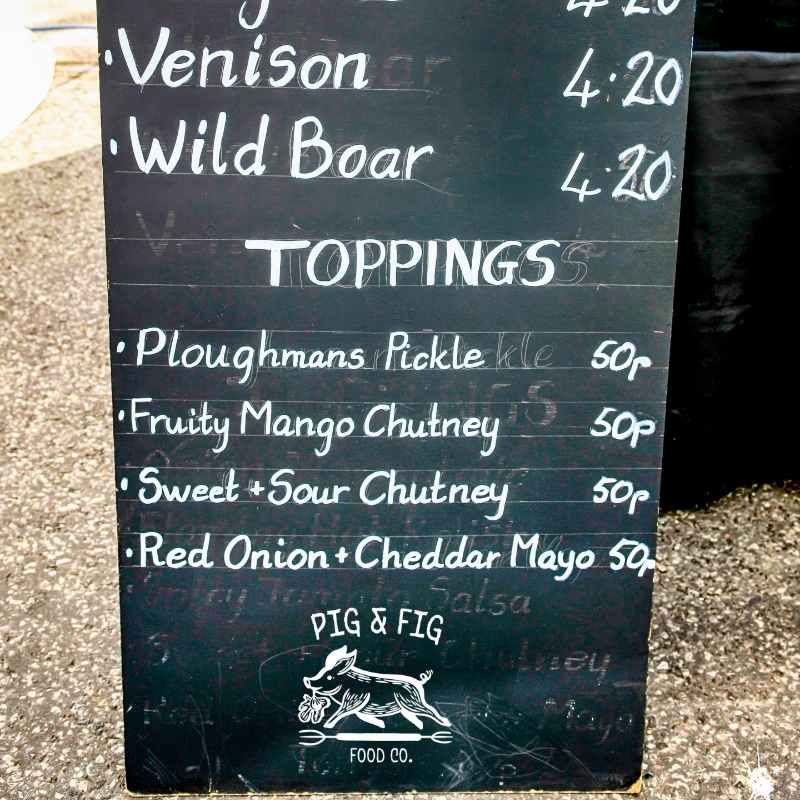 4·20
·Venison 4·20
·Wild Boar 4·20
TOPPINGS
·Ploughmans Pickle 50p
·Fruity Mango Chutney 50p
·Sweet+Sour Chutney 50p
·Red Onion+Cheddar Mayo 50p
Salsa
PIG & FIG
Chutney
Mayo
FOOD CO.